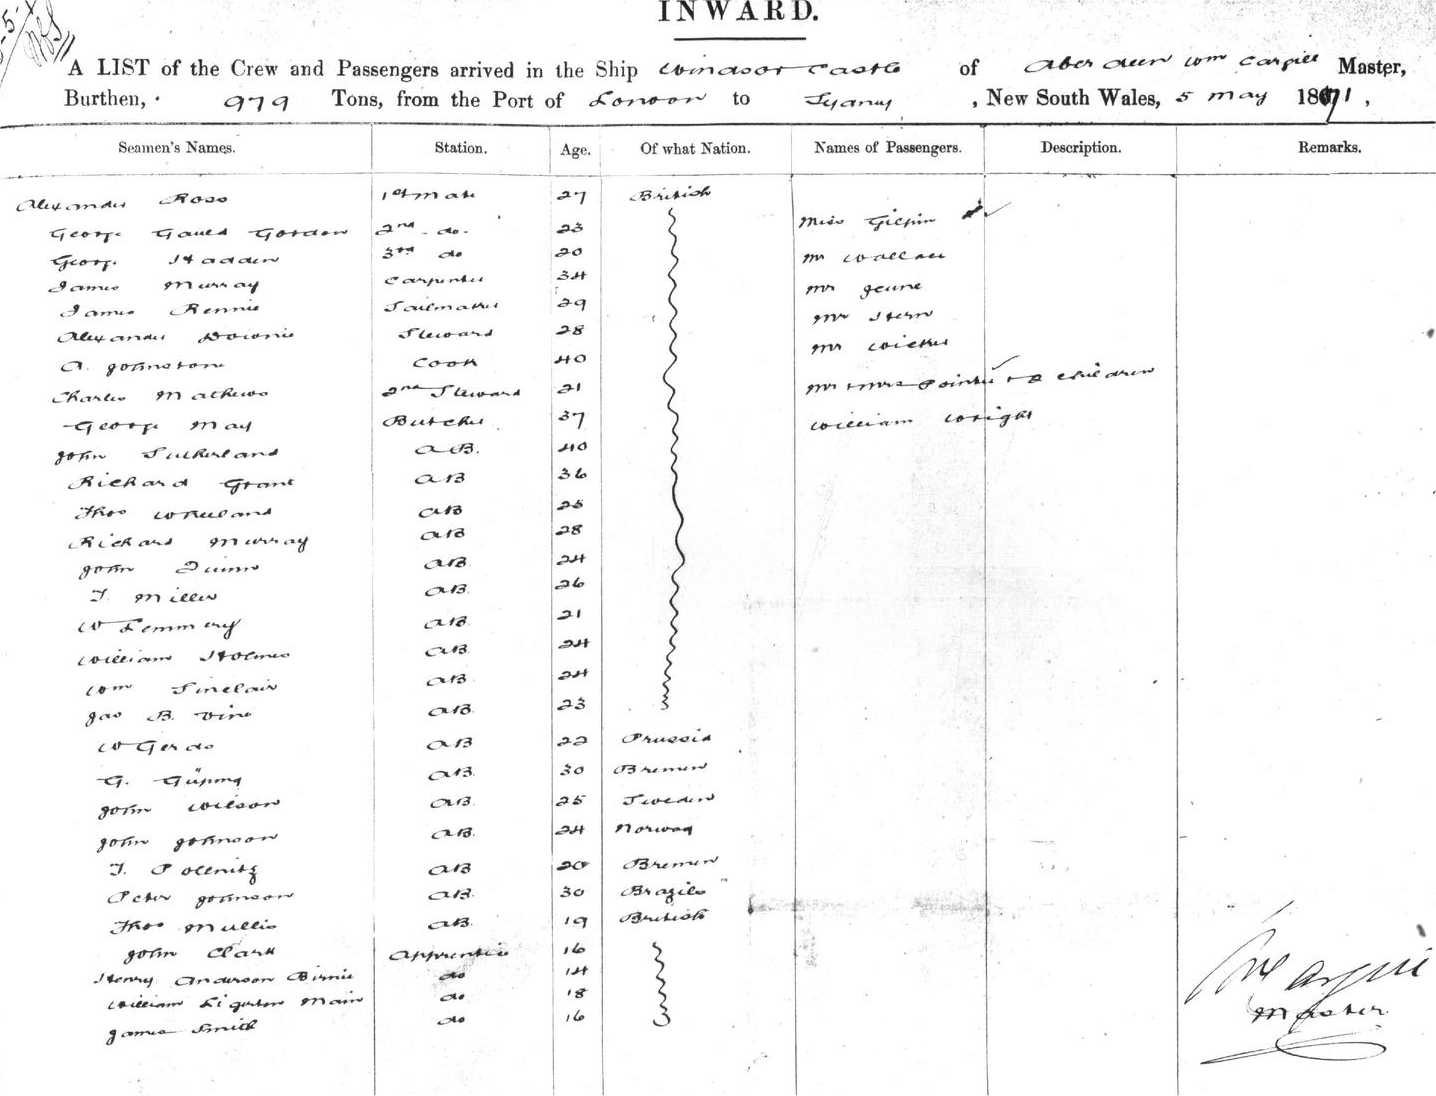 INWARD.
A LIST of the Crew and Passengers arrived in the Ship Windsor Castle of Aberdeen Wm Cargill Master,
Burthen, 979 Tons, from the Port of London to Sydney, New South Wales, 5 May 1871,
Seamen's Names. Station. Age. Of what Nation. Names of Passengers. Description. Remarks.
Alexander Ross 1st Mate 27 British
George Gauld Gordon 2nd do. 23 Miss Gilpin
George Hadden 3rd do 20 Mr Wallace
James Murray Carpenter 34 Mr Jeune
James Rennie Sailmaker 29 Mr Stern
Alexander Downie Steward 28 Mr Wickes
A. Johnstone Cook 40
Charles Mathews 2nd Steward 21 Mr + Mrs Pointer + 2 children
George May Butcher 37 William Wright
John Sutherland A.B. 40
Richard Grant AB 36
Thos Wheeland AB 25
Richard Murray AB 28
John Quinn AB 24
T. Miller AB 26
W Lemmery AB. 21
William Holmes AB. 24
Wm Sinclair AB 24
Jas B. Vine AB 23
W Gerds AB 22 Prussia
G. AB. 30 Bremen
John Wilson AB 25 Sweden
John Johnson AB. 24 Norway
T. Pollnitz AB 20 Bremen
Peter Johnson AB. 30 Brazils
Thos Mullis AB. 19 British
John Clark Apprentice 16
Henry Anderson Birnie do 14
William Main do 18
James Smith do 16
WCargill
Master